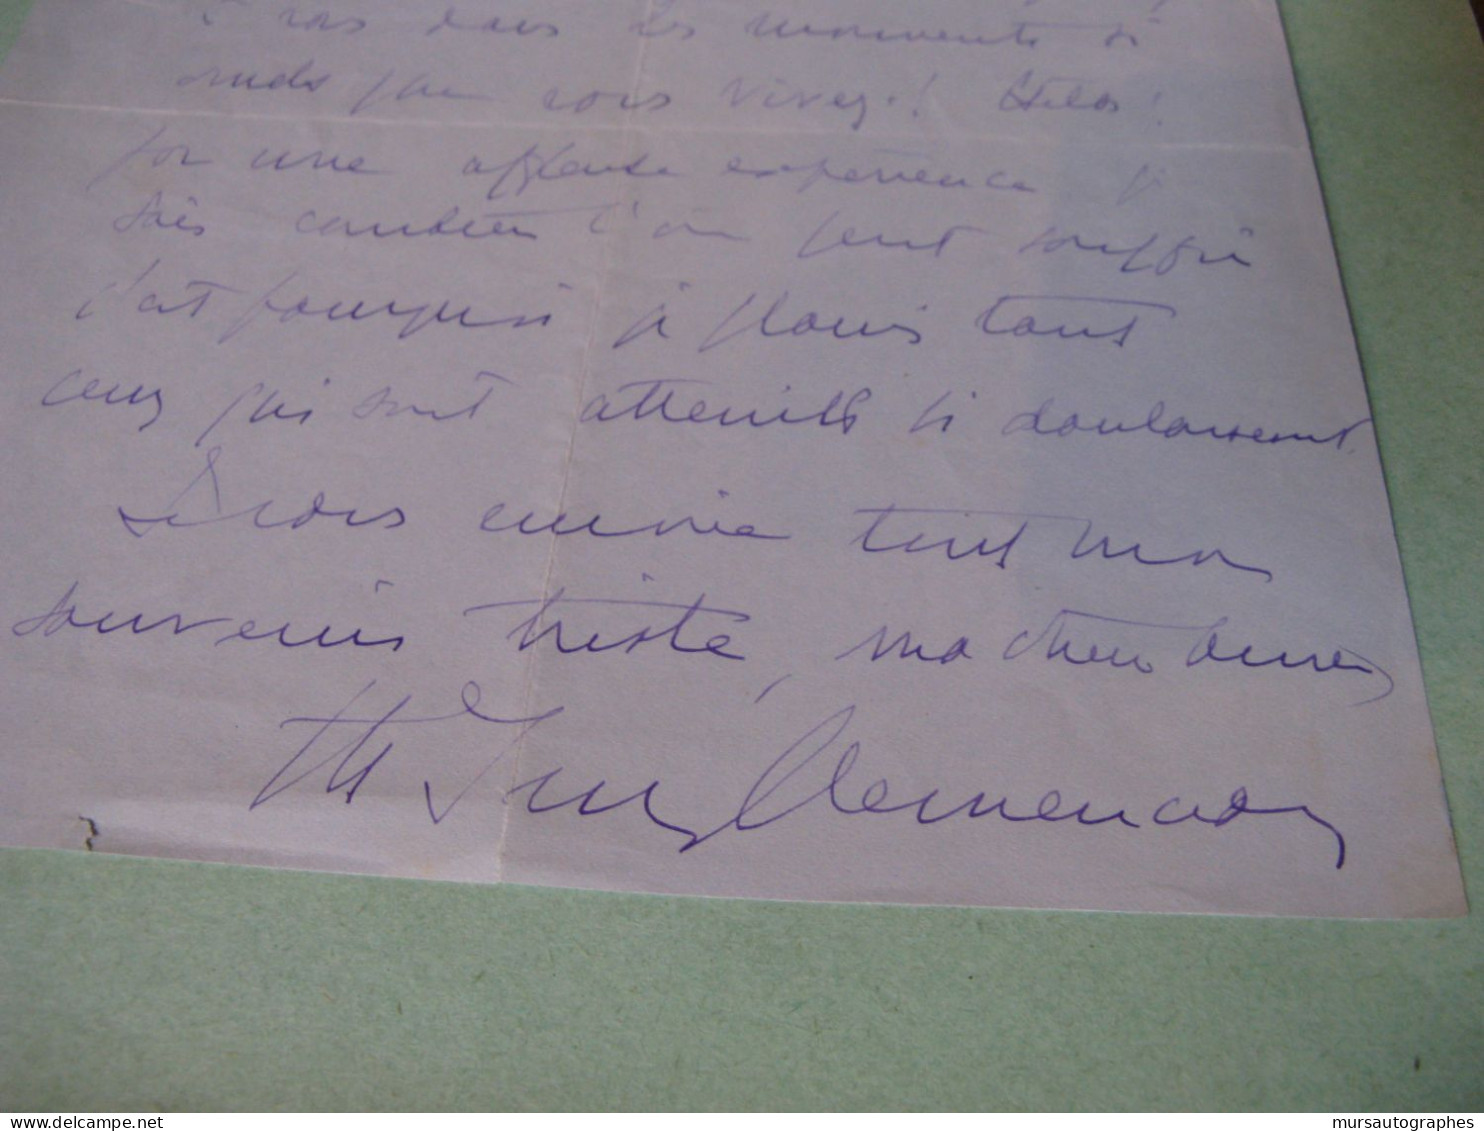 à vous dans les moments si
rudes que vous vivez ! Hélas !
par une affreuse expérience je
sais combien l'on peut souffrir
c'est pourquoi je plains tant
ceux qui sont atteints si douloureusement.
Je vous envoie tout mon
souvenir triste, ma chère amie
Th Iung Clemenceau
delcampe.net
mursautographes